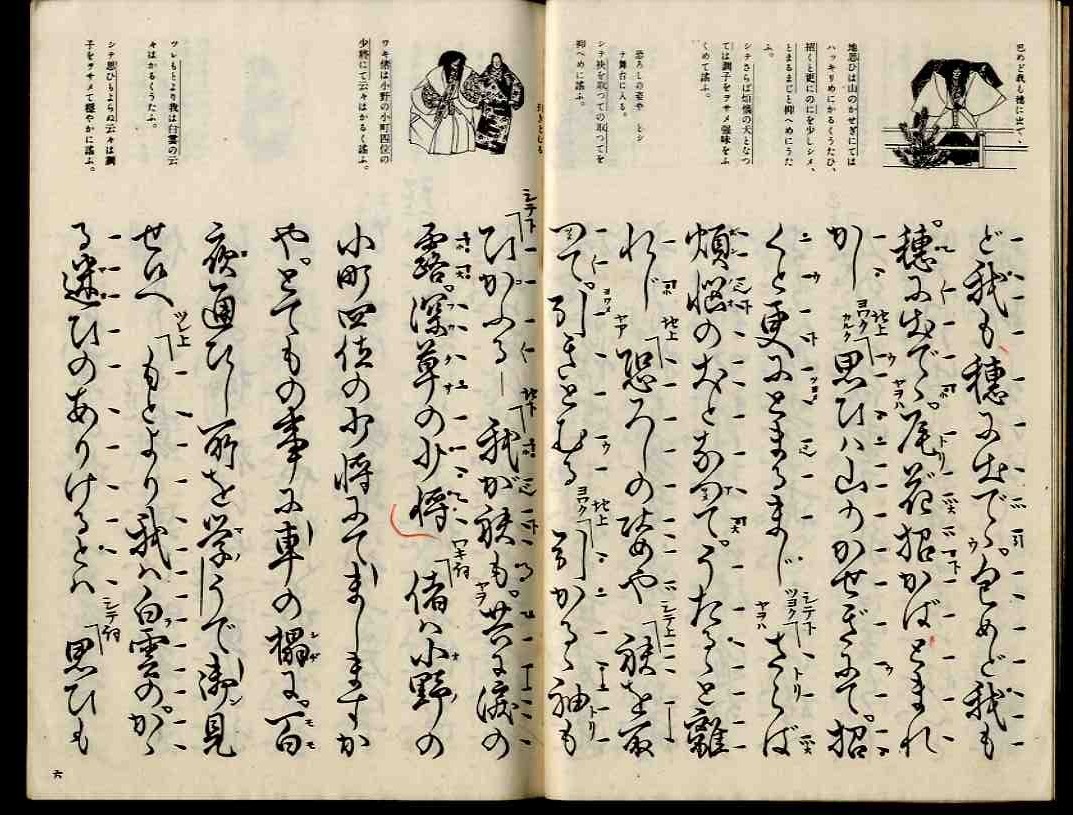 包めど我も穂に出て、
地思ひは山のかせぎにては
ハッキリめにかるくうたひ、
招くと更にのにを少しシメ、
とまるまじと抑へめにうた
ふ。
シテさらば煩悩の犬となつ
ては調子をヲサメ強味をふ
くめて謡ふ。
恐ろしの姿や とシ
テ舞台に入る。
シテ袂を取つての取つてを
抑へめに謡ふ。
ど我も穂に出でゝ。包めど我も
穂に出でゝ。尾花招かばとまれ
かし 地上 思ひハ山のかせぎにて。招
くと更にとまるまじ シテ下 さらば
煩悩の犬となつて。うたるゝと離
れじ 地上 恐ろしの姿や シテ上 袂を取
つて。引きとむる 地上 引かるゝ袖も
引きとむる
ワキ偖は小野の小町四位の
少将にて云々はかるく謡ふ。
ツレもとより我は白雲の云
々はかるくうたふ。
シテ思ひもよらぬ云々は調
子をヲサメて穏やかに謡ふ。
シテ下 ひかふる 地下 我が袂も。共に涙の
露。深草の少将 ワキ詞 偖ハ小野の
小町四位の少将にてましますか
や。とてもの事に車の榻に。百
夜通ひし所を学うで御見
せ候へ ツレ上 もとより我ハ白雲の。かゝ
る迷ひのありけるとハ シテ詞 思ひも
六